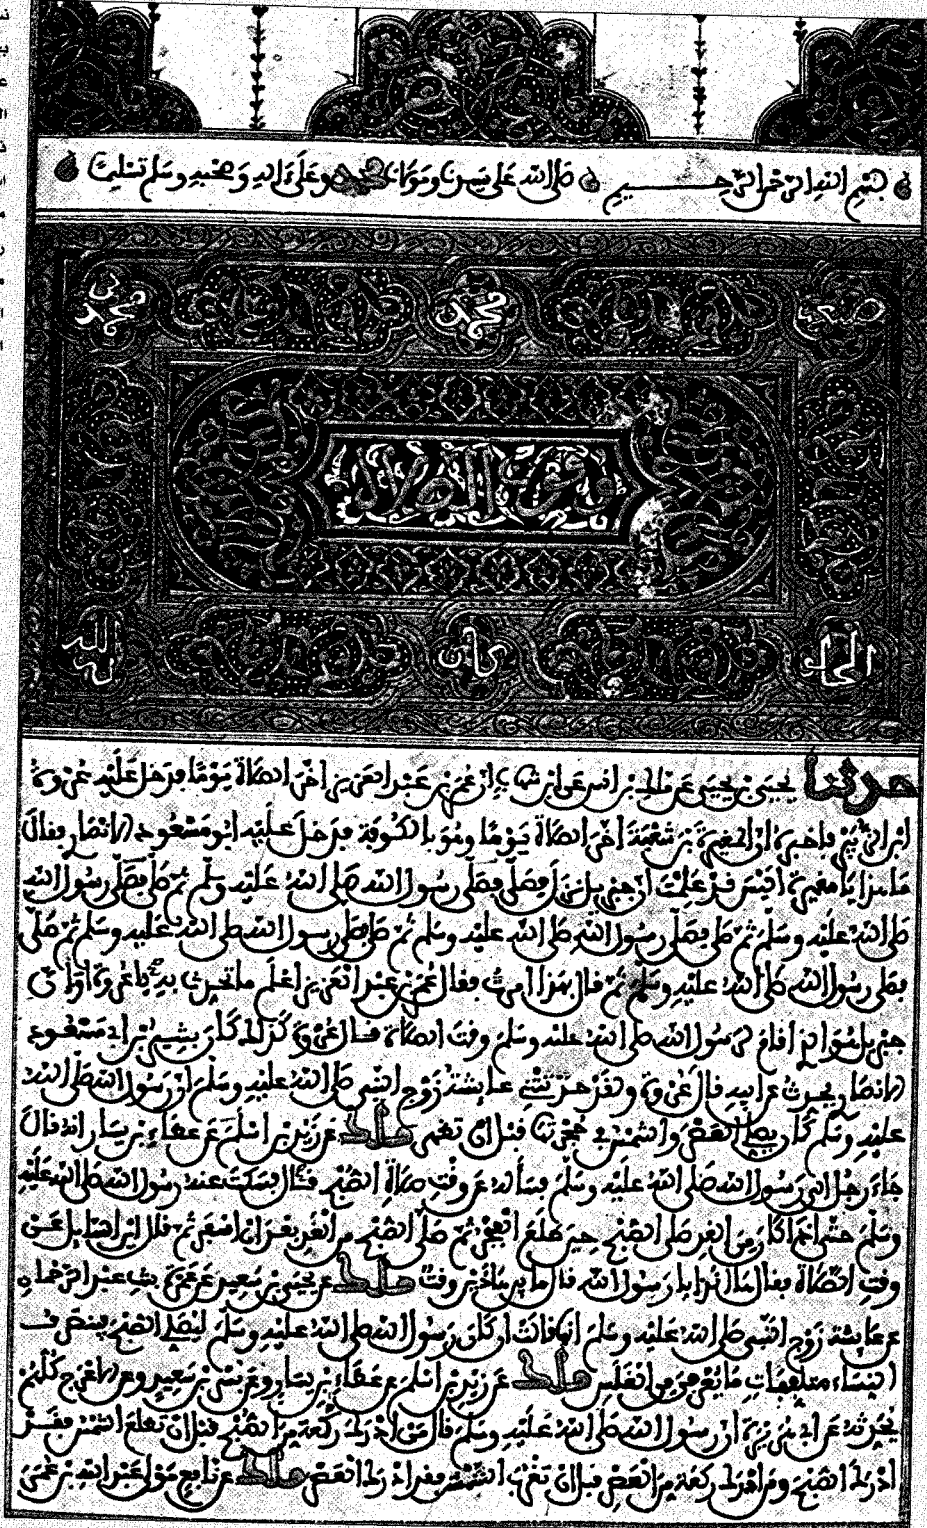 بسم الله الرحمن الرحيم صلى الله على سيدنا ومولانا محمد وعلى ءاله وصحبه وسلم تسليما
محمد
محمد
وقوت الصلاة
لله
كان
الجاه
حدثنا يحيى بن يحيى عن مالك بن انس عن ابن شهاب ان عمر بن عبد العزيز اخر الصلاة يوما فدخل عليه عروة
ابن الزبير فاخبره ان المغيرة بن شعبة اخر الصلاة يوما وهو بالكوفة فدخل عليه ابو مسعود الانصاري فقال
ما هذا يا مغيرة اليس قد علمت ان جبريل نزل فصلى فصلى رسول الله صلى الله عليه وسلم ثم صلى فصلى رسول الله
صلى الله عليه وسلم ثم صلى فصلى رسول الله صلى الله عليه وسلم ثم صلى فصلى رسول الله صلى الله عليه وسلم ثم صلى
فصلى رسول الله صلى الله عليه وسلم ثم قال بهذا امرت فقال عمر بن عبد العزيز اعلم ما تحدث به يا عروة اوان
جبريل هو الذي اقام لرسول الله صلى الله عليه وسلم وقت الصلاة قال عروة كذلك كان بشير بن ابي مسعود
الانصاري يحدث عن ابيه قال عروة ولقد حدثتني عايشة زوج النبي صلى الله عليه وسلم ان رسول الله صلى الله
عليه وسلم كان يصلي العصر والشمس في حجرتها قبل ان تظهر مالك عن زيد بن اسلم عن عطاء بن يسار انه قال
جاء رجل الى رسول الله صلى الله عليه وسلم فسأله عن وقت صلاة الصبح قال فسكت عنه رسول الله صلى الله عليه
وسلم حتى اذا كان من الغد صلى الصبح حين طلع الفجر ثم صلى الصبح من الغد بعد ان اسفر ثم قال اين السايل عن
وقت الصلاة فقال هاأنذا يا رسول الله قال ما بين هاذين وقت مالك عن يحيى بن سعيد عن عمرة بنت عبد الرحمان
عن عايشة زوج النبي صلى الله عليه وسلم انها قالت ان كان رسول الله صلى الله عليه وسلم ليصلي الصبح فينصرف
النساء متلففات ما يعرفن من الغلس مالك عن زيد بن اسلم عن عطاء بن يسار وعن بسر بن سعيد وعن الاعرج كلهم
يحدثه عن ابي هريرة ان رسول الله صلى الله عليه وسلم قال من ادرك ركعة من الصبح قبل ان تطلع الشمس فقد
ادرك الصبح ومن ادرك ركعة من العصر قبل ان تغرب الشمس فقد ادرك العصر مالك عن نافع مولى عبد الله بن عمر